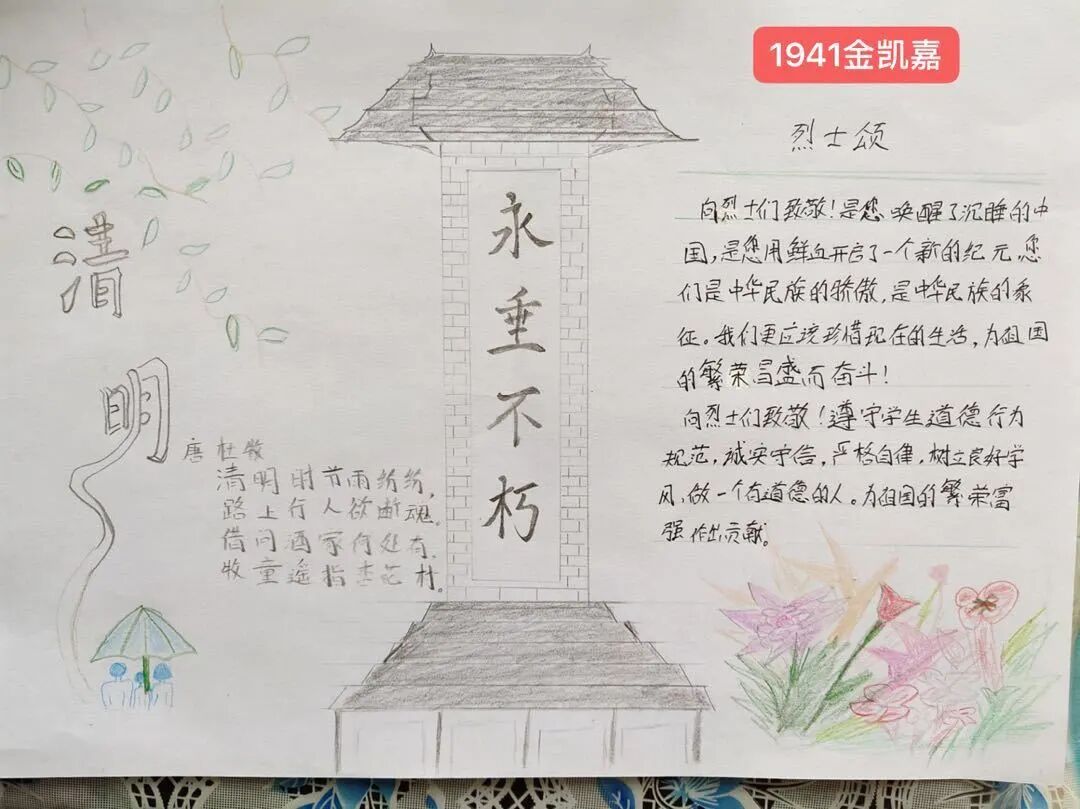 1941金凯嘉
清
明
唐 杜牧
清明时节雨纷纷，
路上行人欲断魂。
借问酒家何处有，
牧童遥指杏花村。
永
垂
不
朽
烈士颂
向烈士们致敬！是您唤醒了沉睡的中
国，是您用鲜血开启了一个新的纪元。您
们是中华民族的骄傲，是中华民族的象
征。我们更应该珍惜现在的生活，为祖国
的繁荣昌盛而奋斗！
向烈士们致敬！遵守学生道德行为
规范，诚实守信，严格自律，树立良好学
风，做一个有道德的人。为祖国的繁荣富
强作出贡献。